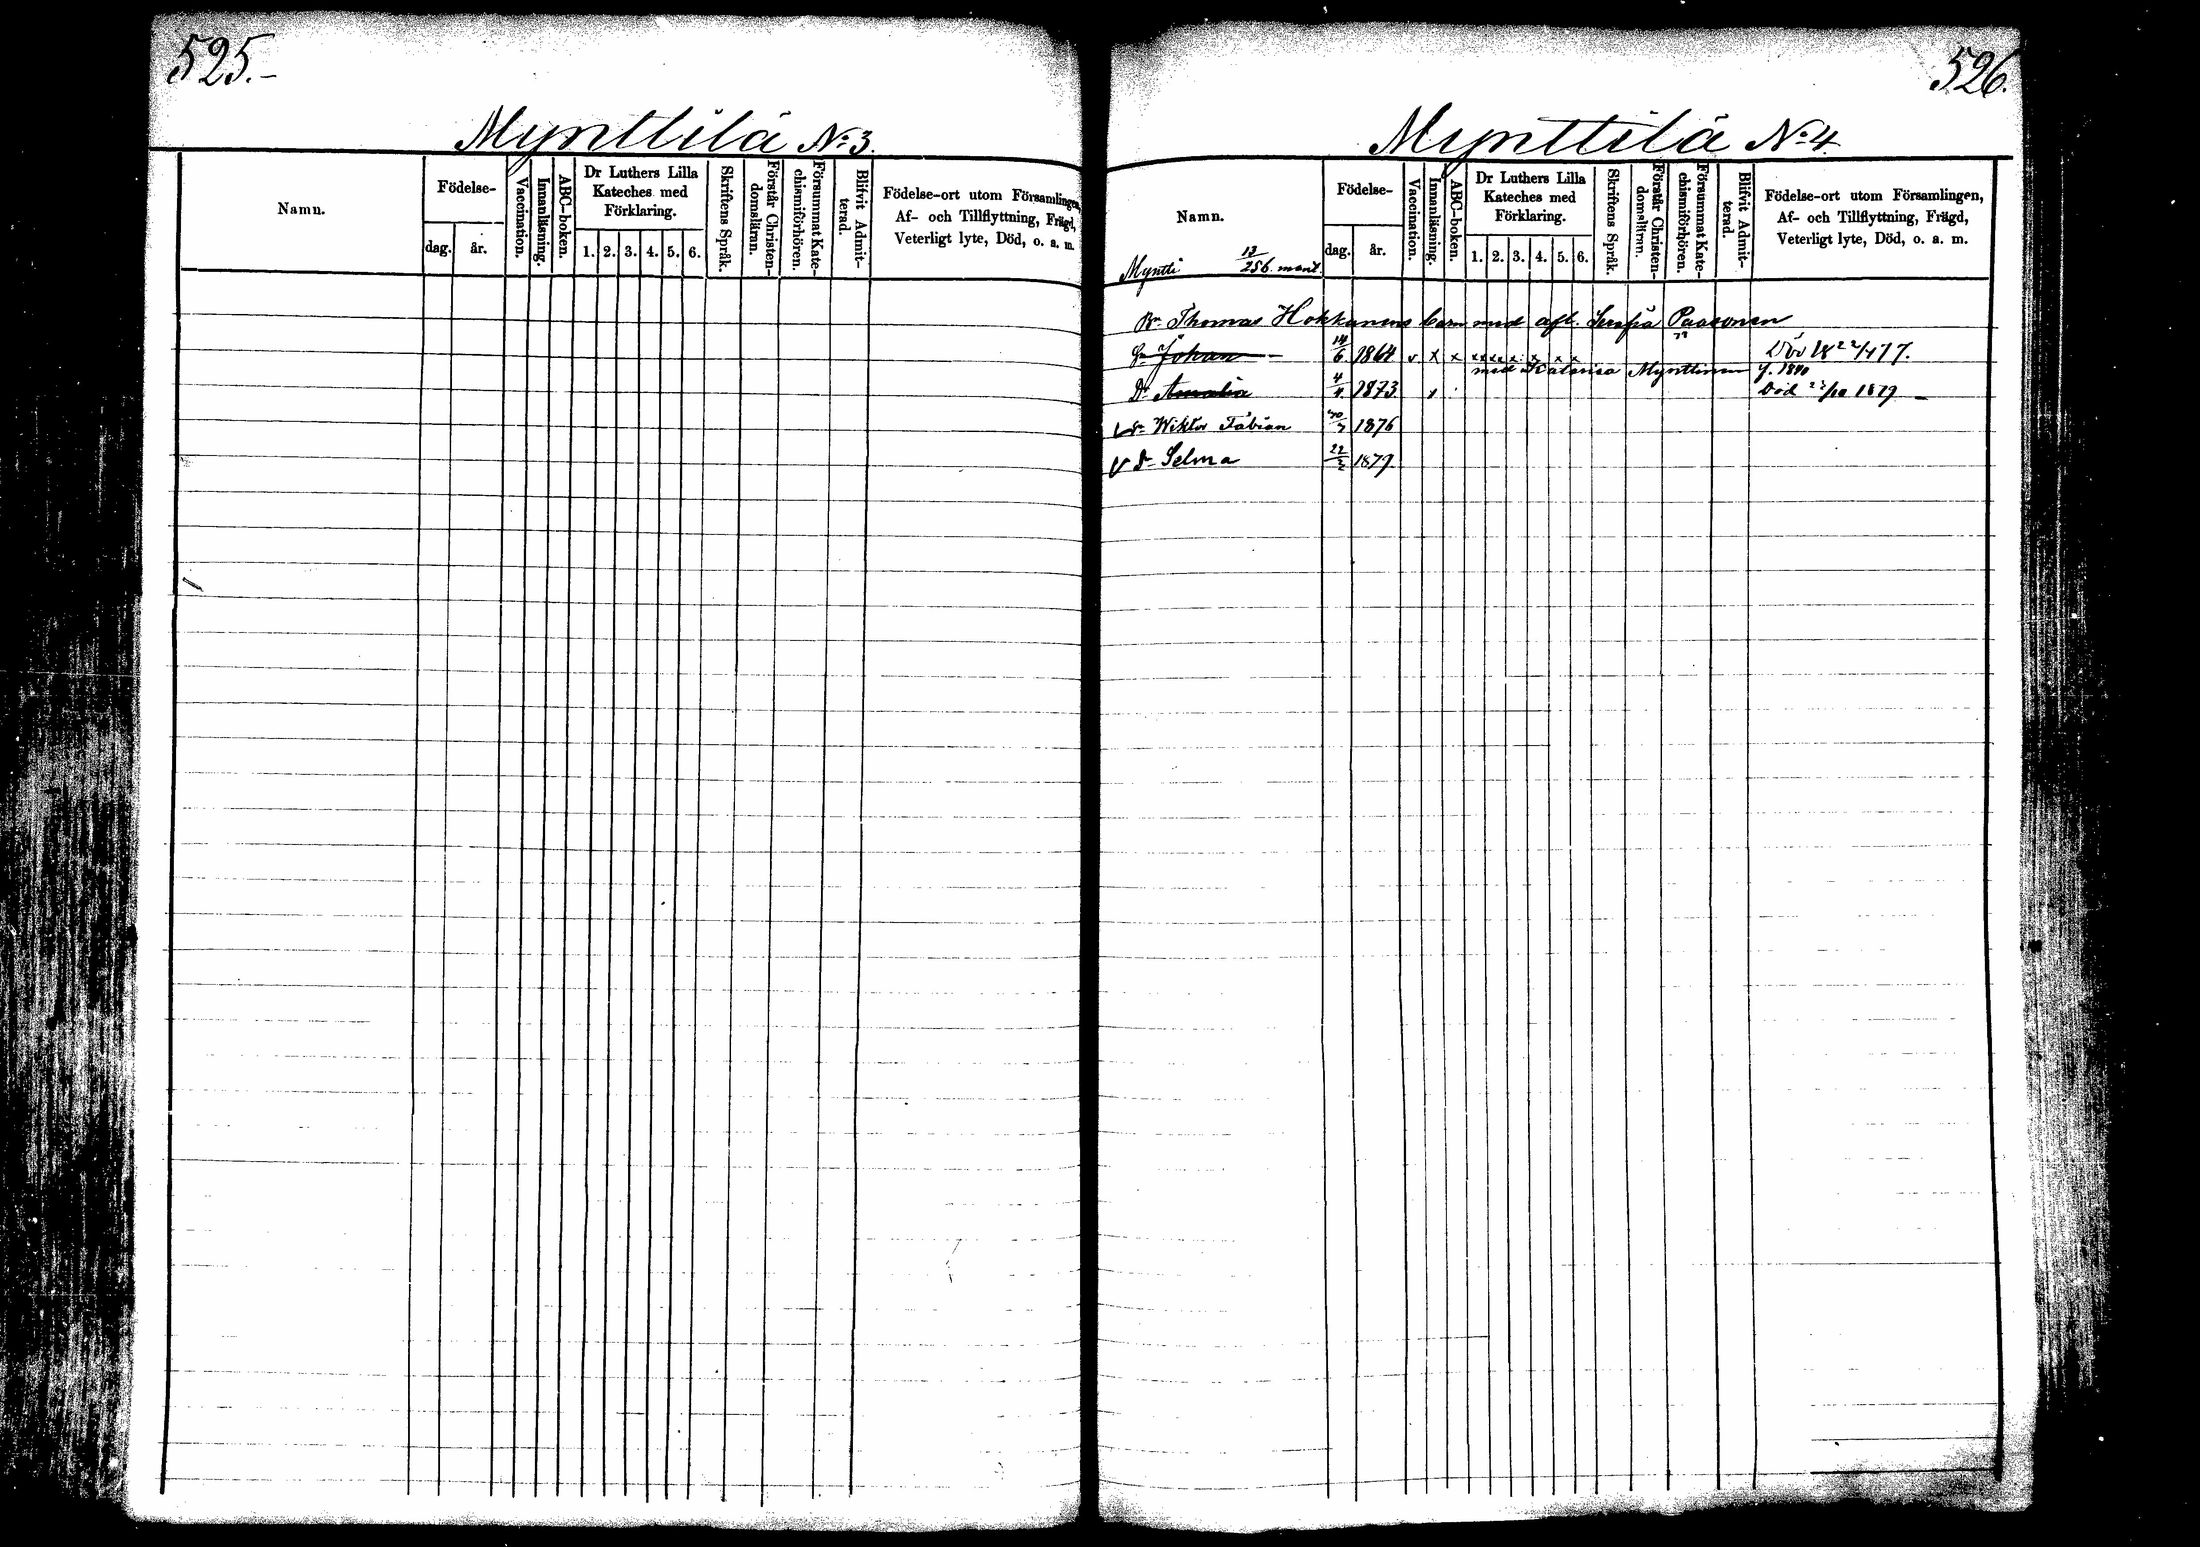 525.-
Mynttilä No 3.
Namn.
Födelse-
dag.
år.
Vaccination.
Innanläsning.
ABC-boken.
Dr Luthers Lilla
Kateches med
Förklaring.
1. 2. 3. 4. 5. 6.
Skriftens Språk.
Förstår Christen-
domsläran.
Försummat Kate-
chismiförhören.
Blifvit Admit-
terad.
Födelse-ort utom Församlingen,
Af- och Tillflyttning, Frägd,
Veterligt lyte, Död, o. a. m.
526.
Mynttilä No 4.
Namn.
Myntti 13/256 mantl.
Födelse-
dag.
år.
Vaccination.
Innanläsning.
ABC-boken.
Dr Luthers Lilla
Kateches med
Förklaring.
1. 2. 3. 4. 5. 6.
Skriftens Språk.
Förstår Christen-
domsläran.
Försummat Kate-
chismiförhören.
Blifvit Admit-
terad.
Födelse-ort utom Församlingen,
Af- och Tillflyttning, Frägd,
Veterligt lyte, Död, o. a. m.
Br. Thomas Hokkanens barn med afl. Serafia Paasonen
Johan 14/6 1864 v x x x x x x x x x
med Mynttinen
Dr Amalia 4/4 1873 Död 1879 -
Sr Wiktor Fabian 1876
V Dr Selma 22/2 1879.